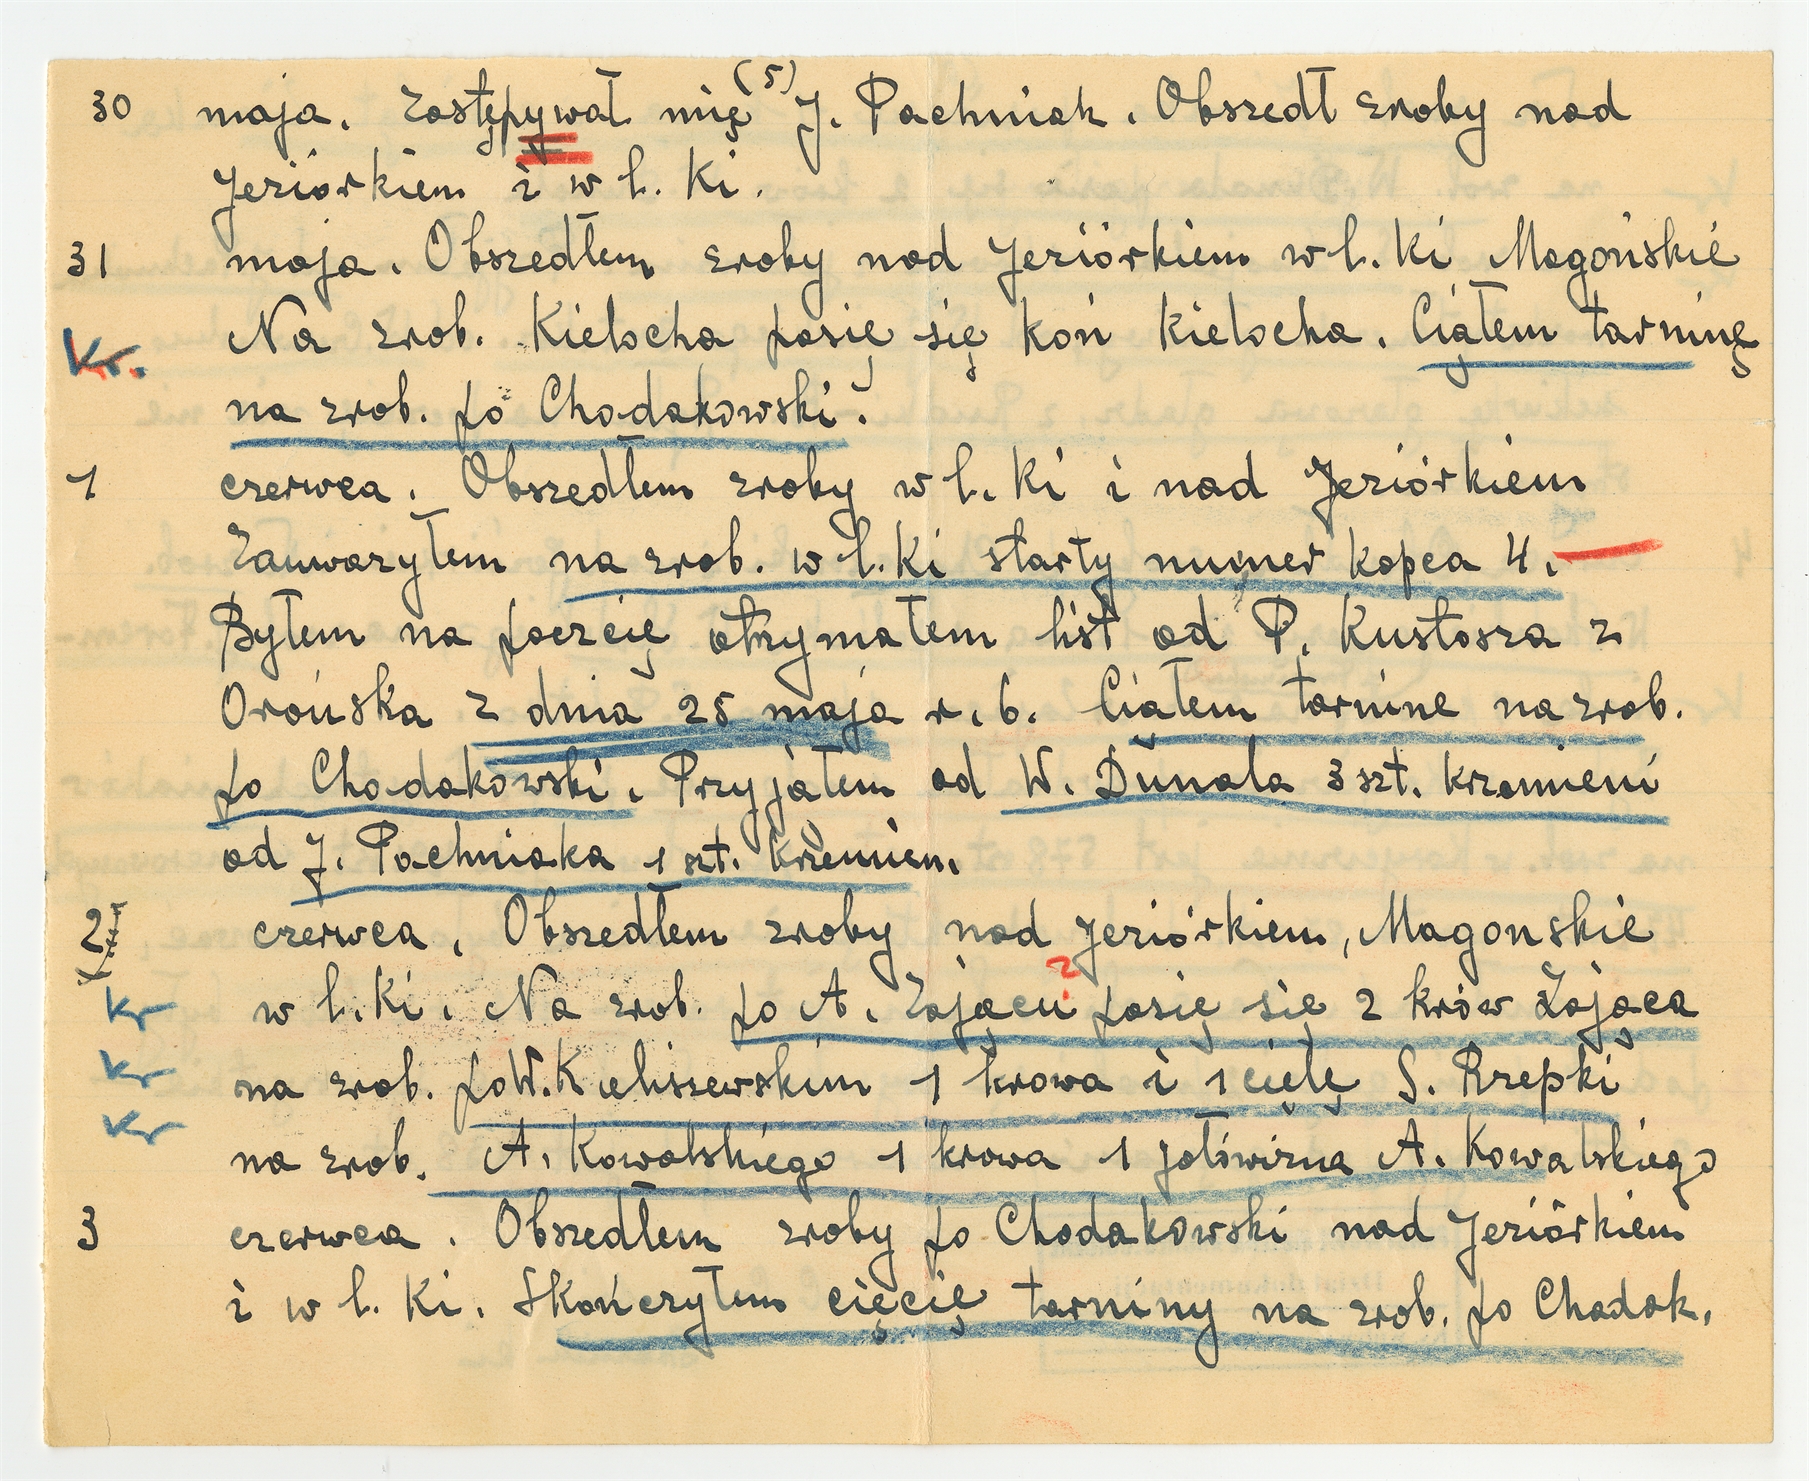 30 maja. Zastępywał mię (5) J. Pachniak. Obszedł zroby nad
Jeziórkiem i w l. Ki.
31 maja. Obszedłem zroby nad Jeziórkiem w l. Ki Magońskie
Kr. Na zrob. Kielocha pasię się koń Kielocha. Ciąłem tarninę
na zrob. po Chodakowski.
1 czerwca. Obszedłem zroby w l. Ki i nad Jeziórkiem
Zauwarzyłem na zrob. w l. Ki starty numer kopca 4.
Byłem na poczcię otrzymałem list od P. Kustosza z
Orońska z dnia 25 maja r. b. Ciąłem tarnine na zrob.
po Chodakowski. Przyjąłem od W. Dunala 3 szt. krzemieni
od J. Pachniaka 1 szt. krzemień.
2 czerwca. Obszedłem zroby nad Jeziórkiem, Magonskie
Kr w l. Ki. Na zrob. po A. Zającu ? pasię się 2 krów Zająca
Kr na zrob. po W. Kieliszewskim 1 krowa i 1 cielę S. Rzepki
Kr na zrob. A. Kowalskiego 1 krowa 1 jałówizna A. Kowalskiego
3 czerwca. Obszedłem zroby po Chodakowski nad Jeziórkiem
i w l. Ki. Skończyłem cięcię tarniny na zrob. po Chadak.